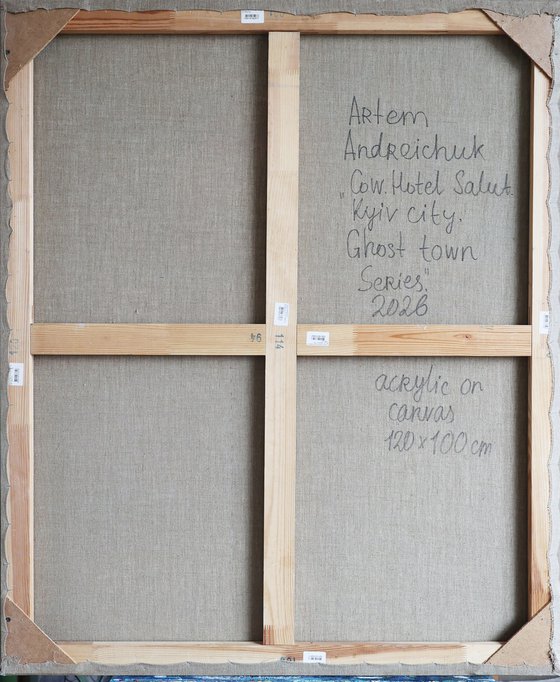 Artem
Andreichuk
"Cow. Hotel Salut.
Kyiv city.
Ghost town
Series."
2026
94
114
acrylic on
canvas
120x100cm